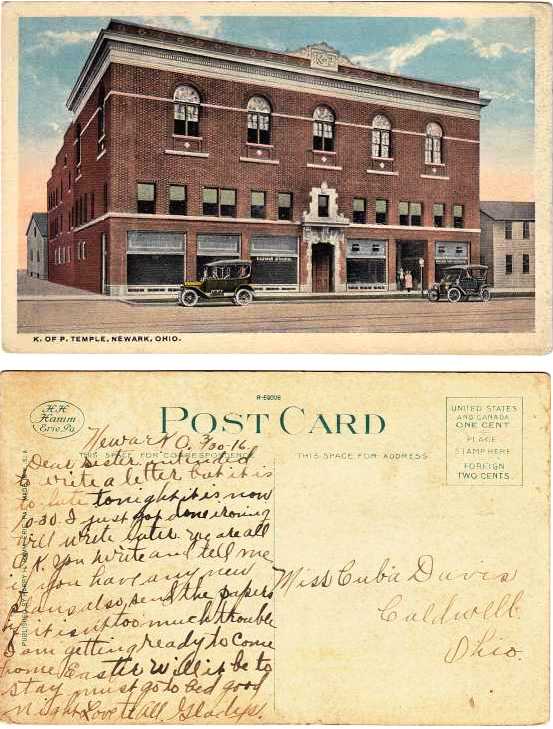 K. OF P. TEMPLE, NEWARK, OHIO.
H.H.
Hamm
Erie, Pa
POST CARD
THIS SPACE FOR CORRESPONDENCE
THIS SPACE FOR ADDRESS
UNITED STATES
AND CANADA
ONE CENT
PLACE
STAMP HERE
FOREIGN
TWO CENTS
Newark O. 3/30-16
Dear Sister intended
to write a letter but it is
to late tonight it is now
10:30. I just got done ironing
will write later we are all
O.K. You write and tell me
if you have any new
plans also, send the papers
if it isn too much trouble
I am getting ready to come
home Easter will it be to
stay must go to bed good
night Love to all. Gladys.
Miss Cuba Davis
Caldwell
Ohio.